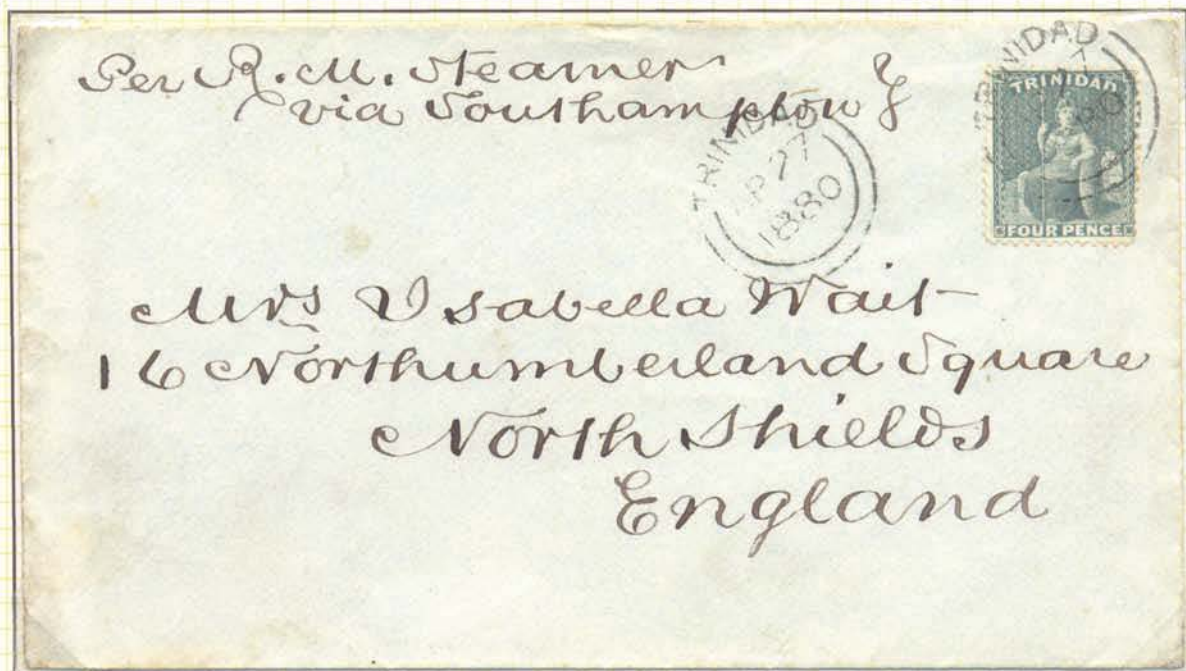 Per R.M. Steamer
via Southampton
TRINIDAD
AP 27
1880
TRINIDAD
TRINIDAD
FOUR PENCE
Mrs Isabella Wait
16 Northumberland Square
North Shields
England